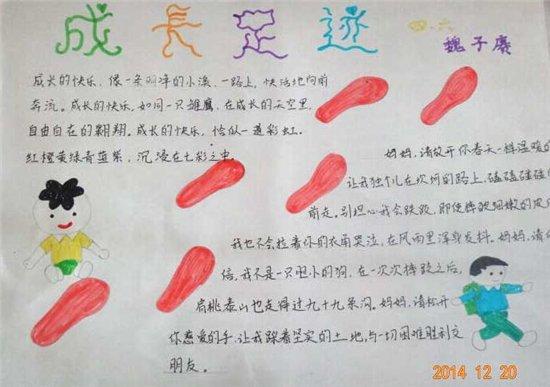 成长足迹
四.六
魏子赓
成长的快乐，像一条叫洋的小溪，一路上，快活地向前
奔流。成长的快乐，如同一只雄鹰，在成长的天空里，
自由自在的翱翔。成长的快乐，恰似一道彩虹，
红橙黄绿青蓝紫，沉浸在七彩之中。
妈妈，请放开你春天一样温暖的
让我独个儿在坎坷的路上，磕磕碰碰
前走，别担心我会跌跤，即使摔破细嫩的皮
我也不会拉着你的衣角哭泣，在风雨里浑身发抖。妈妈，请
信，我不是一只胆小的狗，在一次次摔跤之后，
肩挑泰山也走得过九十九条沟。妈妈，请松开
你慈爱的手，让我踩着坚实的土地，与一切困难胜利交
朋友。
2014 12 20